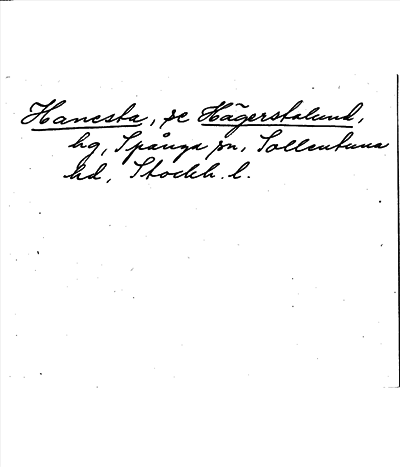 Hanesta, se Hägerstalund,
hg, Spånga sn, Sollentuna
hd, Stockh. l.